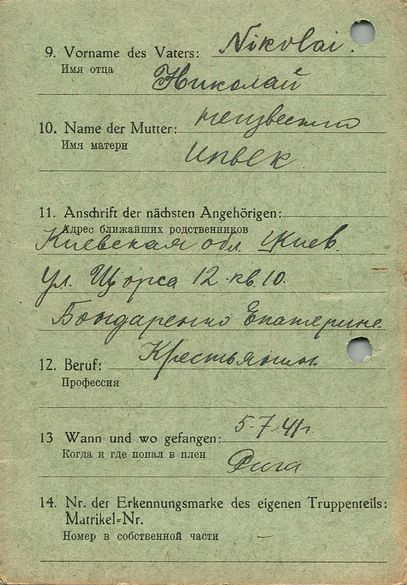 9. Vorname des Vaters: Nikolai.
Имя отца
Николай
10. Name der Mutter: неизвестно
Имя матери
11. Anschrift der nächsten Angehörigen:
Адрес ближайших родственников
Киевская обл. г. Киев.
ул. Щорса 12 кв. 10.
Бондаренко Екатерине
12. Beruf: Крестьянин.
Профессия
13 Wann und wo gefangen: 5.7.41г.
Когда и где попал в плен
Рига
14. Nr. der Erkennungsmarke des eigenen Truppenteils:
Matrikel-Nr.
Номер в собственной части –